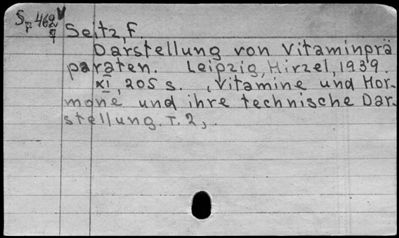 Seitz, F.
Darstellung von Vitaminprä
paraten. Leipzig, Hirzel, 1939.
XI, 205 s. (Vitamine und Hor-
mone und ihre technische Dar-
stellung. T. 2,.